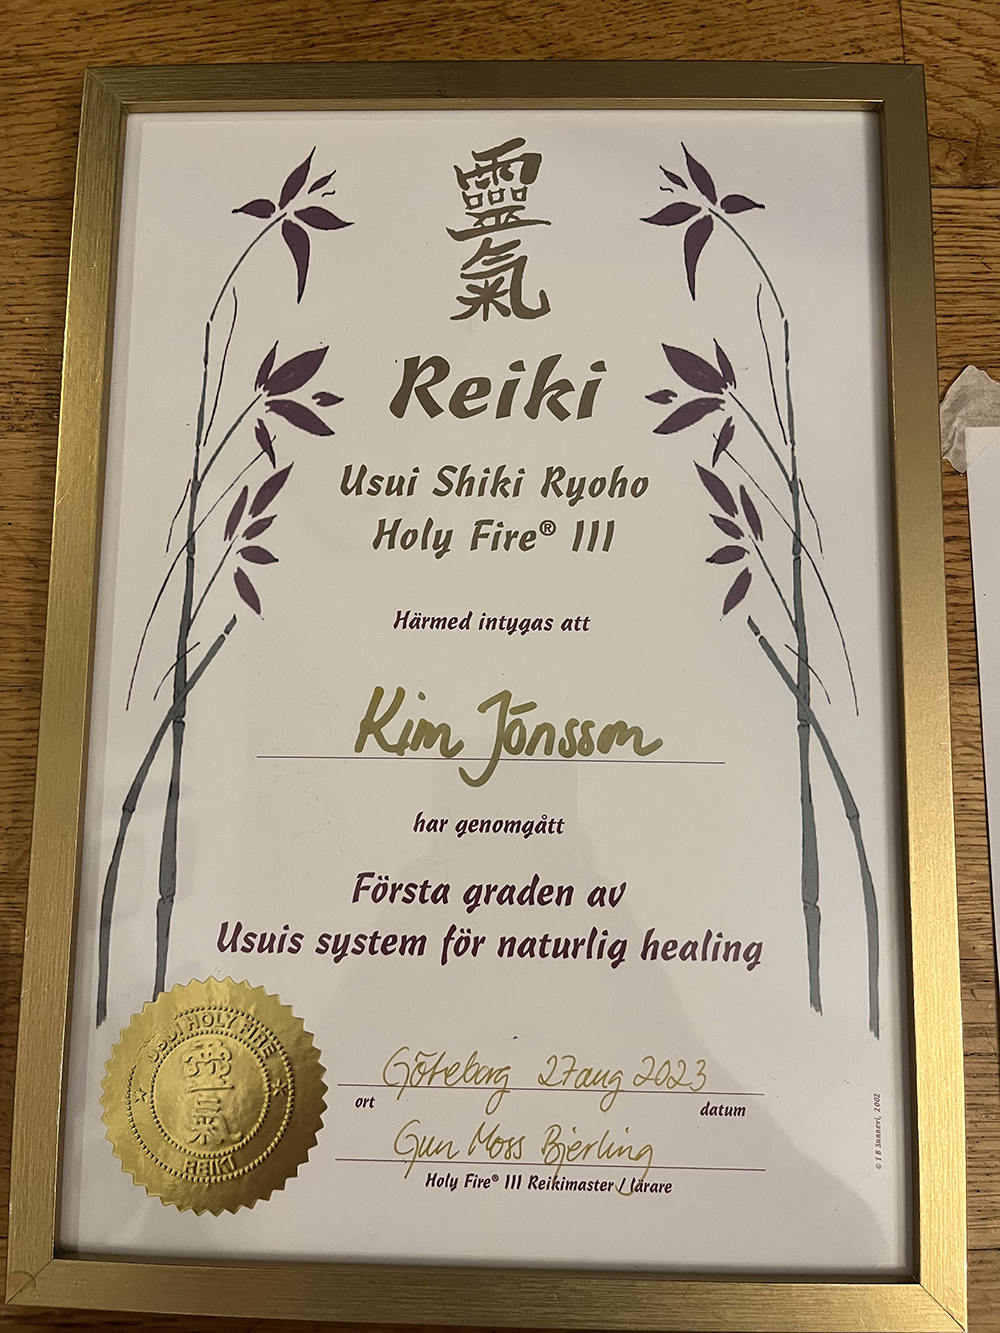 靈
氣
Reiki
Usui Shiki Ryoho
Holy Fire® III
Härmed intygas att
Kim Jönsson
har genomgått
Första graden av
Usuis system för naturlig healing
Göteborg 27 aug 2023
ort datum
Gun Moss Bjerling
Holy Fire® III Reikimaster / lärare
USUI HOLY FIRE
靈
氣
REIKI
© I B Sunnevi, 2002